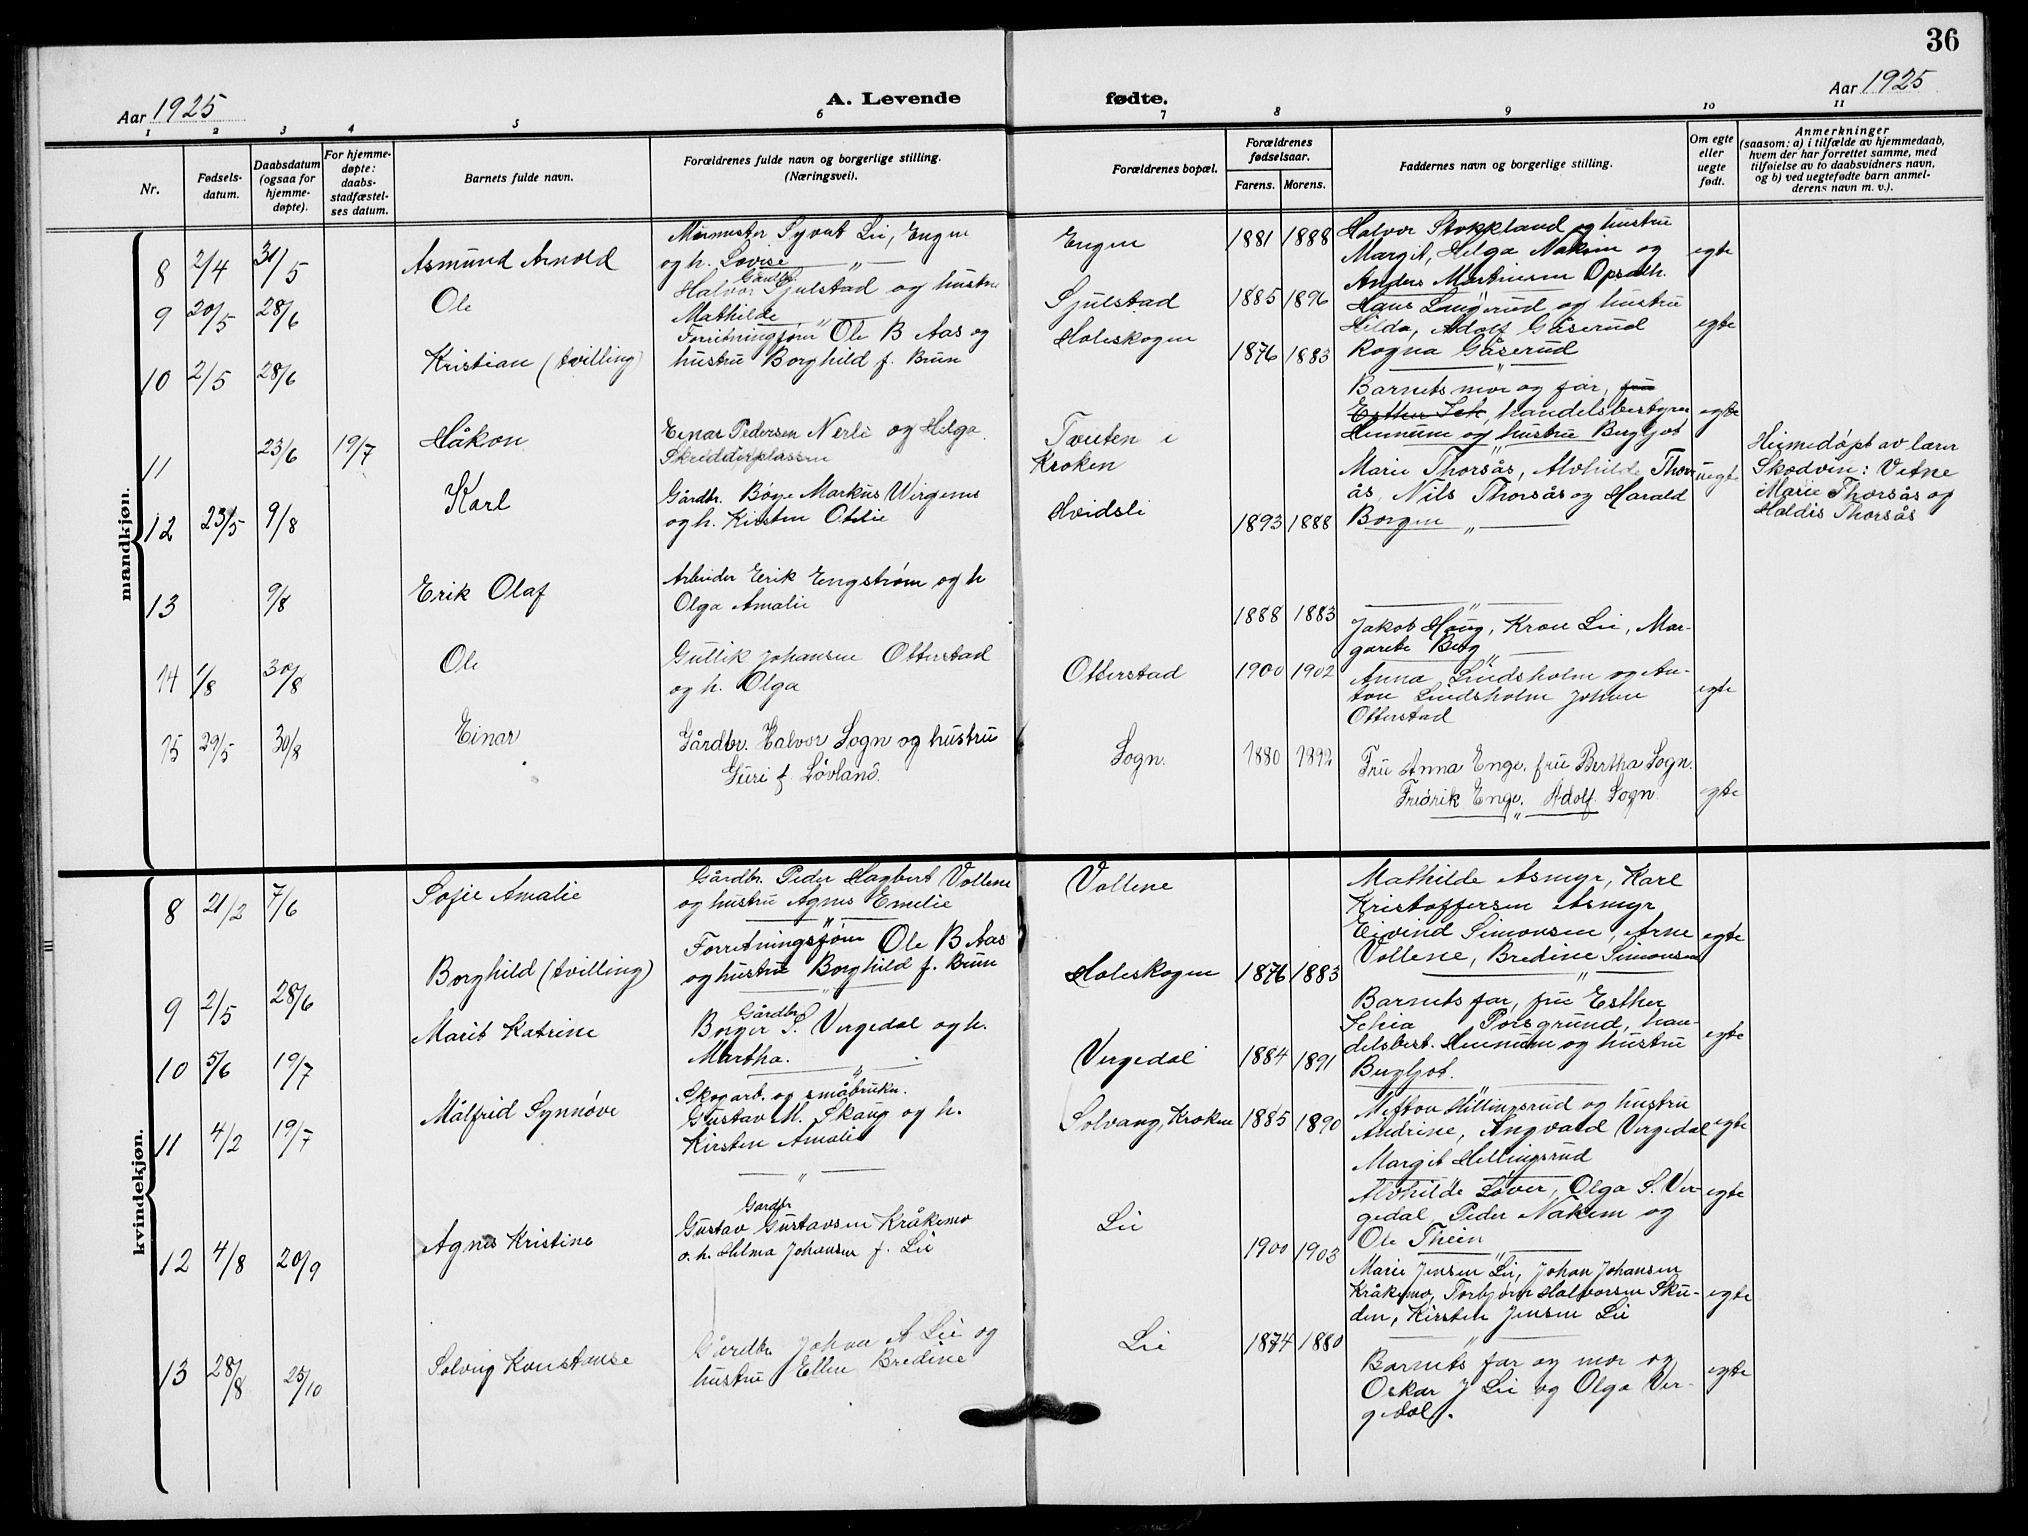 36
Aar 1925
A. Levende
fødte.
Aar 1925
1 2 3 4 5 6 7 8 9 10 11
Nr.
Fødsels-
datum.
Daabsdatum
(ogsaa for
hjemme-
døpte).
For hjemme-
døpte:
daabs-
stadfæstel-
ses datum.
Barnets fulde navn.
Forældrenes fulde navn og borgerlige stilling.
(Næringsvei).
Forældrenes bopæl.
Forældrenes
fødselsaar.
Farens. Morens.
Faddernes navn og borgerlige stilling.
Om egte
eller
uegte
født.
Anmerkninger
(saasom: a) i tilfælde av hjemmedaab,
hvem der har forrettet samme, med
tilføielse av to daabsvidners navn,
og b) ved uegtefødte barn anmel-
derens navn m. v.).
mandkjøn.
8 2/4 31/5 Asmund Arnold
Murmester Syvert Lie, Engen
og h. Lovise
Engen 1881 1888
Halvor Stokkland og hustru
Margit, Helga Nakim og
Anders Martinsen Opsath.
egte
9 20/5 28/6 Ole
Gårdbr.
Halvor Sjulstad og hustru
Mathilde
Sjulstad 1885 1896
Hans Langerud og hustru
Hilda, Adolf Gåserud
Rogna Gåserud
egte
10 2/5 28/6 Kristian (tvilling)
Forretningsfører Ole B Aas og
hustru Borghild f. Brun
Holeskogen 1876 1883
Barnets mor og far, fru
Esther Sch, handelsbestyrer
Hennum og hustru Bergljot
egte
11 23/6 19/7 Håkon
Einar Pedersen Nerli og Helga
Skredderplassen
Tveiten i
Kroken
Marie Thorsås, Alvhilde Thor-
ås, Nils Thorsås og Harald
Borgen
uegte
Heimedøpt av lærer
Skodvin: Vitne
Marie Thorsås og
Haldis Thorsås
12 23/5 9/8 Karl
Gårdbr. Børje Markus Wirgenes
og h. Kirsten Otilie
Hvidsli 1893 1888
13 9/8 Erik Olaf
Arbeider Eirik Engstrøm og h
Olga Amalie
1888 1883
Jakob Haug, Krou Lie, Mar-
garete Berg
14 1/8 30/8 Ole
Gullik Johansen Otterstad
og h. Olga
Otterstad 1900 1902
Anna Lindsholm og An-
ton Lindsholm Johan
Otterstad
egte
15 29/5 30/8 Einar
Gårdbr. Halvor Sogn og hustru
Guri f. Løvland.
Sogn. 1880 1892
Fru Anna Enge, fru Bertha Sogn.
Fredrik Enge. Adolf Sogn
egte
kvindekjøn.
8 21/2 7/6 Sofie Amalie
Gårdbr. Peder Hagbert Vollene
og hustru Agnes Emelie
Vollene
Mathilde Asmyr, Karl
Kristoffersen Asmyr
Eivind Simonsen, Arne
Vollene, Bredine Simonsen
egte
9 2/5 28/6 Borghild (tvilling)
Forretningsfører Ole B Aas
og hustru Borghild f. Brun
Holeskogen 1876 1883
Barnets far, fru Esther
Schia Porsgrund, han-
delsbest. Hennum og hustru
Bergljot.
egte
10 5/6 19/7 Marit Katrine
Gårdbr.
Borger S. Vergedal og h.
Martha.
Vergedal 1884 1891
Meftou Hillingsrud og hustru
Andrine, Angvald Vergedal
Margit Hellingsrud
egte
11 4/2 19/7 Målfrid Synnøve
Skogarb. og småbruker.
Gustav M. Skaug og h.
Kirsten Amalie
Solvang, Kroken 1885 1890
Alvhilde Løver, Olga S. Ver-
gedal, Peder Nakem og
Ole Thein
egte
12 4/8 20/9 Agnes Kristine
Gardbr
Gustav Gustavsen Kråkemo
o. h. Helma Johansen f. Lie
Lie
1900 1903
Marie Jensen Lie, Johan Johansen
Kråkemo, Torbjørn Halvorsen Sku-
den, Kirsten Jensen Lie
egte
13 28/8 25/10 Solveig Konstanse
Gårdbr Johan A Lie og
hustru Ellen Bredine
Lie 1874 1880
Barnets far og mor og
Oskar J Lie og Olga Ver-
gedal.
egte